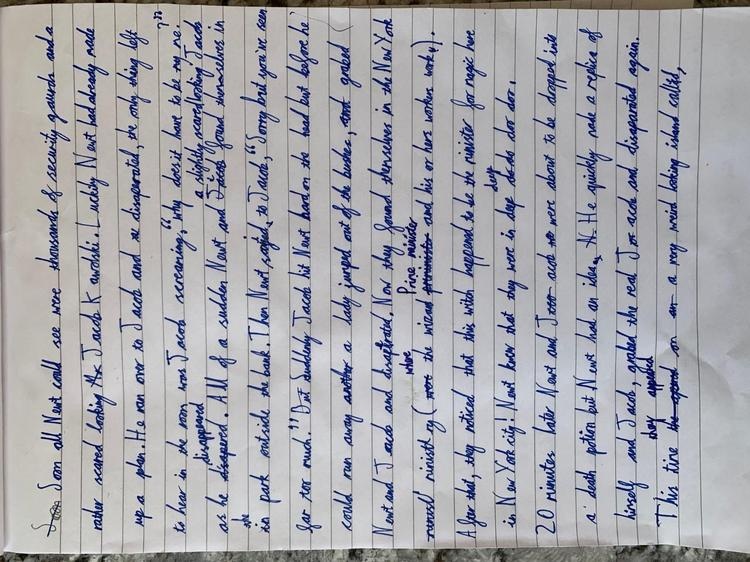 Soon all Newt could see were thousands of security gaurds and a
rather scared looking Mr Jacob Kowolski. Luckily Newt had already made
up a plan. He ran over to Jacob and disaperated, the only thing left
to hear in the room was Jacob screaming, "why does it have to be my me?"
as he disappeared. All of a sudden Newt and a slightly scared looking Jacob found themselves in
the park outside the bank. Then Newt said, to Jacob, "Sorry but you've seen
far too much." But suddenly Jacob hit Newt hard on the head but before he
could run away a lady jumped out of the bushes, grabed
Newt and Jacob and disaperated. Now they found themselves in the New York
ministry (where the Prime minister and his or hers workers work).
After that, they noticed that this witch happened to be the minister for magic here
in New York city! Newt knew that they were in deep deep doo doo.
20 minutes later Newt and Jacob were about to be dropped into
a death potion but Newt had an idea. He quickly made a replica of
himself and Jacob, grabed the real Jacob and disaperated again.
This time they appeard on a very weird looking island called,